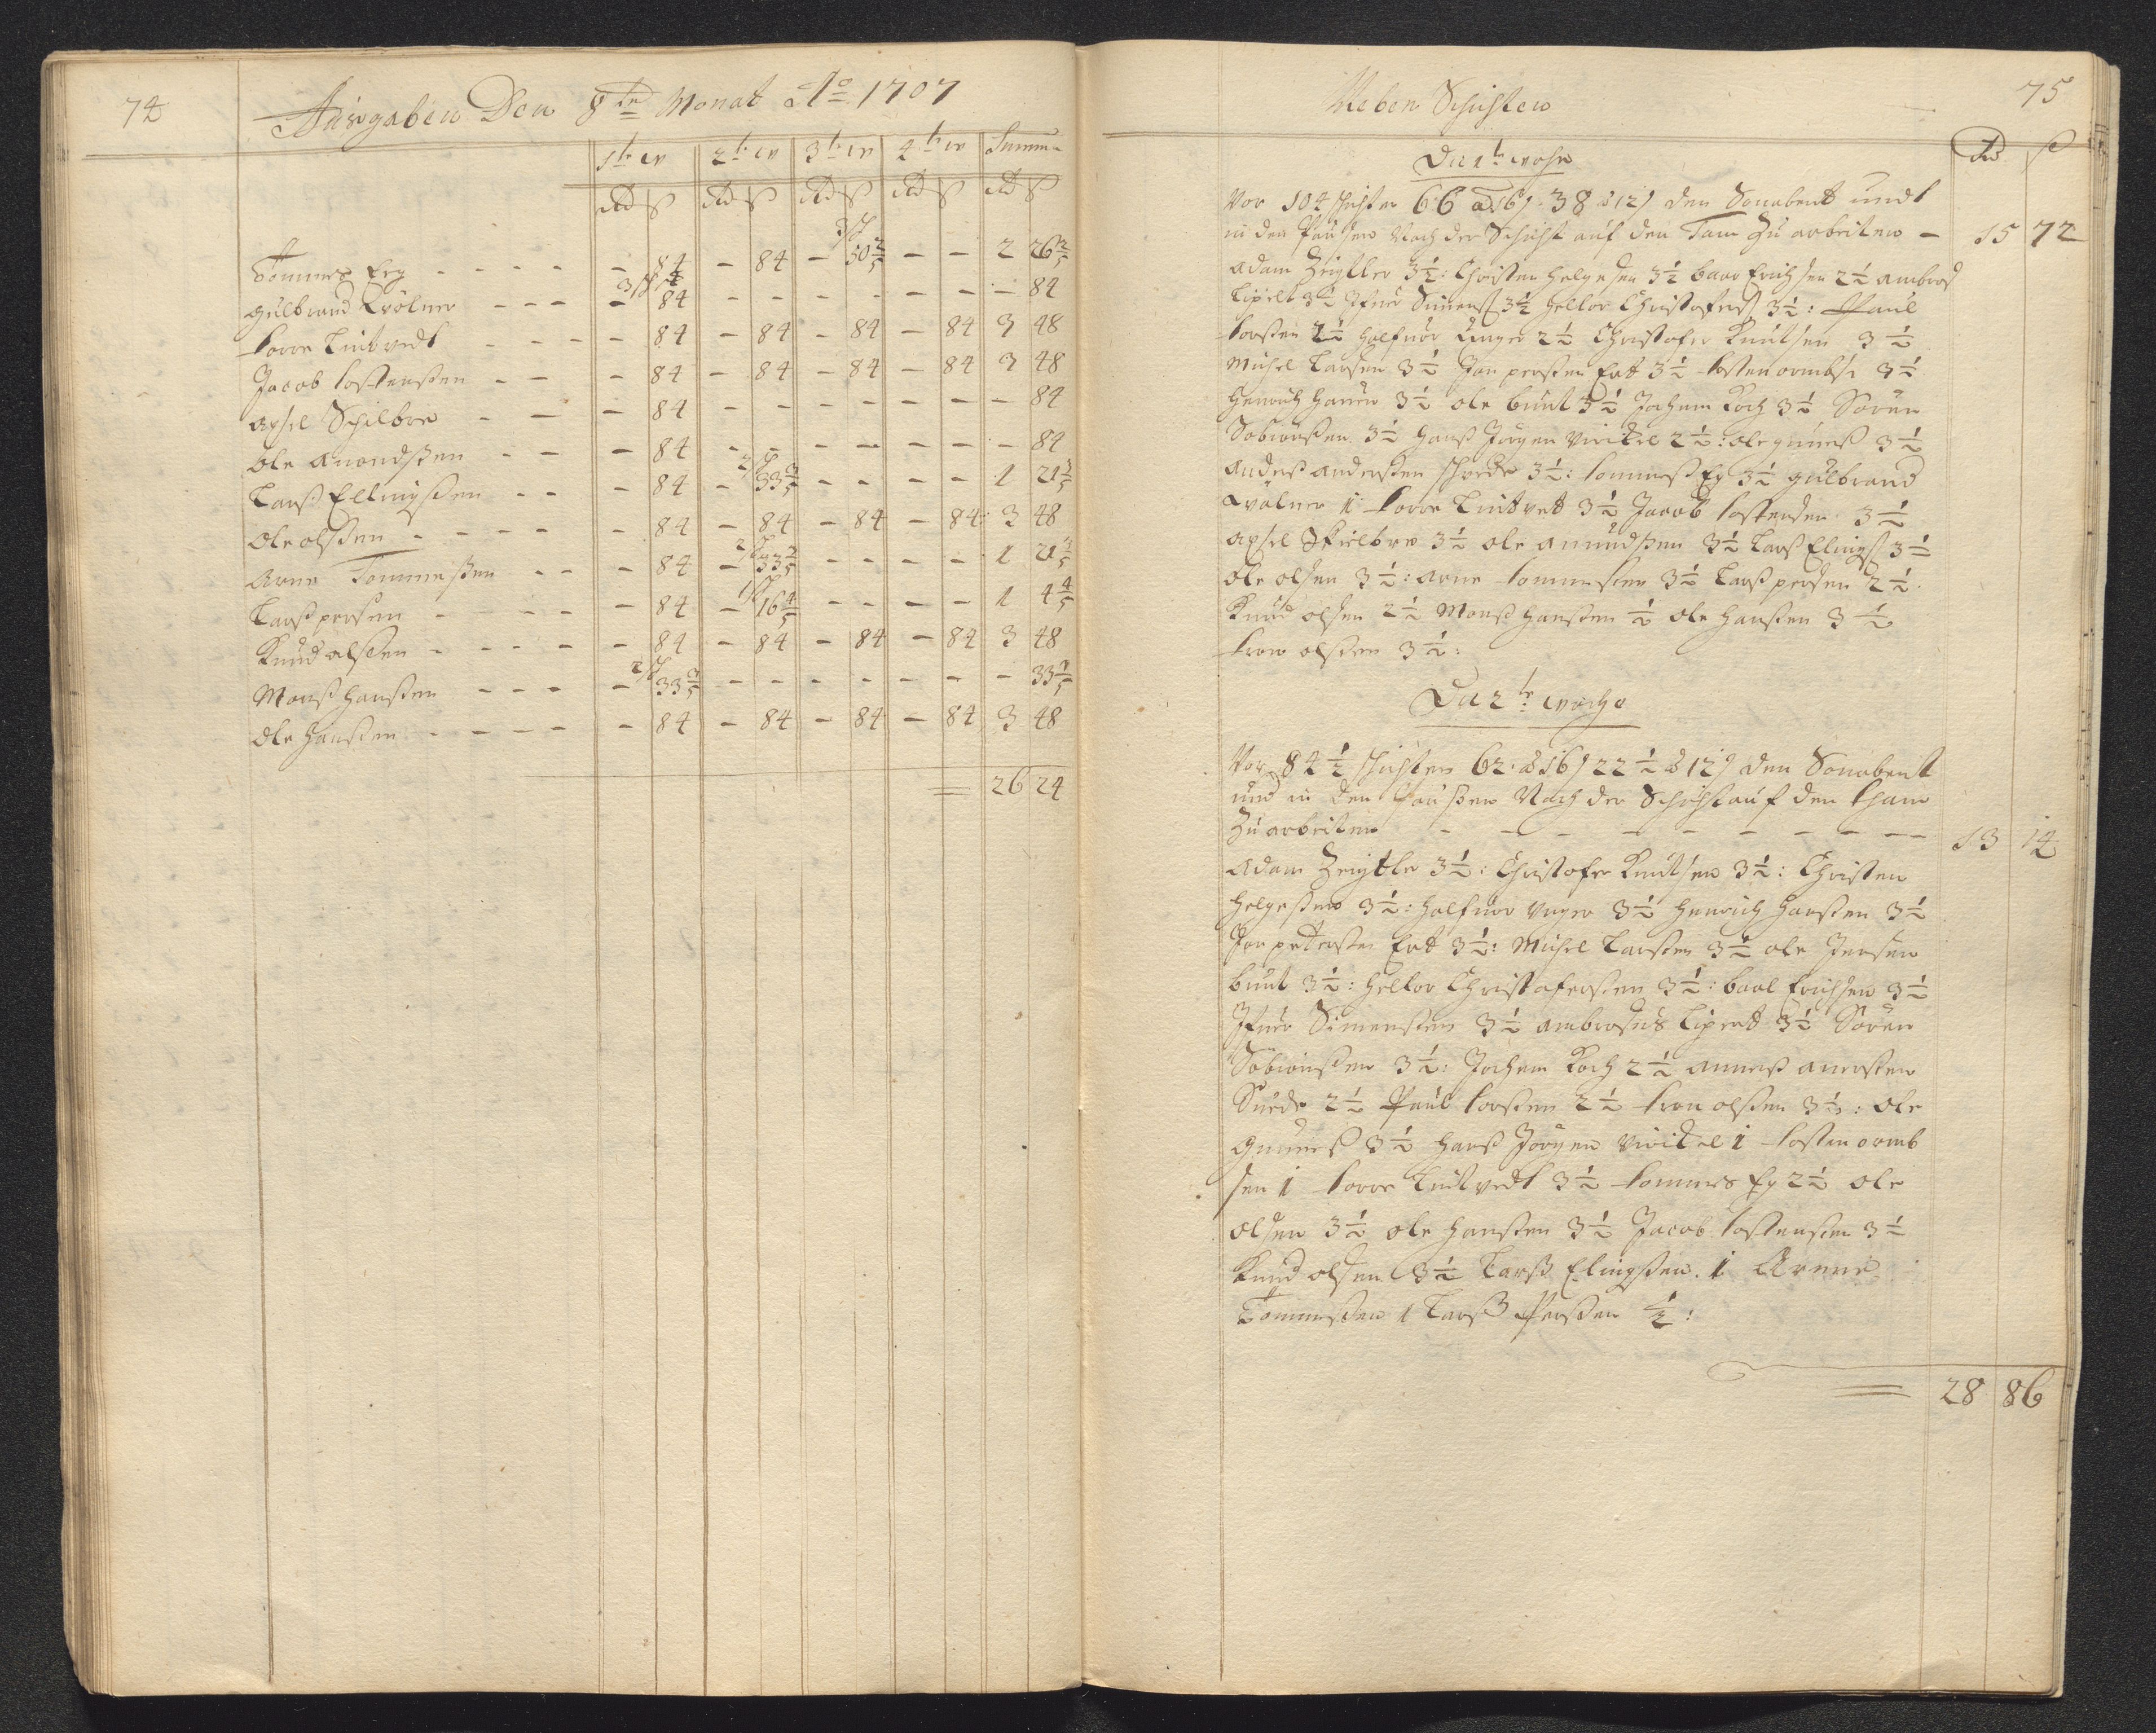 74
Ausgaben Den 8te Monat Ao 1707
1te W 2te W 3te W 4te W Summa
Rd ß Rd ß Rd ß Rd ß Rd ß
3 S
Tommes Eeg - - - - - 84 - 84 - 50 2/5 - - 2 26 2/5
3 S
gulbrand Qvolner - - - - 84 - - - - - - - 84
torre Lintvedt - - - - 84 - 84 - 84 - 84 3 48
Jacob tostensen - - - 84 - 84 - 84 - 84 3 48
axsel Schilbre - - - 84 - - - - - - - 84
ole amondsßen - - - 84 - - - - - - - 84
2 S
Larß Ellingßen - - - 84 - 33 3/5 - - - - 1 21 3/5
ole olßen - - - - - 84 - 84 - 84 - 84 3 48
2 S
Arne Tommeßen - - - 84 - 33 3/5 - - - - 1 21 3/5
1 S
Larß persen - - - - 84 - 16 4/5 - - - - 1 4 4/5
Knud olßen - - - - - 84 - 84 - 84 - 84 3 48
2 S
Monß hanßen - - - - 33 3/5 - - - - - - - 33 3/5
ole hanßen - - - - - 84 - 84 - 84 - 84 3 48
= 26 24
75
Neben Schichten
Rd ß
Die 1te woche
Vor 104 schichten 66 a 16 ß 38 a 12 ß den Sonabent undt
in den Pausen Nach der Schicht auf den Tam zu arbeiten - 15 72
Adam Zeigller 3 1/2: Christen helgesen 3 1/2 baar Erichsen 2 1/2 ambros
Lipelt 3 1/2 Ifuer Simenß 3 1/2 hellor Christofers 3 1/2: Paul
torßen 2 1/2 halfuor Unger 2 1/2 Christofer Knutsen 3 1/2
Michel Larsen 3 1/2 Jon perßen Eet 3 1/2 tosten ormbs 3 1/2
Henrich hansen 3 1/2 ole bunt 3 1/2 Jochem Koch 3 1/2 Sören
Sobionßen 3 1/2 hanß Jörgen Winkel 2 1/2: ole gunneß 3 1/2
anderß anderßen schvede 3 1/2: tommeß Eg 3 1/2 gulbrand
Qvolner 1 torre Lintvet 3 1/2 Jacob tostensen 3 1/2
axsel Skielbre 3 1/2 ole amundßen 3 1/2 Larß Elingß 3 1/2
ole olsen 3 1/2: arne tommesen 3 1/2 Larß persen 2 1/2
Knud olsen 2 1/2 Monß hanßen 1/2 ole hanßen 3 1/2
tron olßen 3 1/2:
Die 2te woche
Vor 84 1/2 schichten 62 a 16 ß 22 1/2 a 12 ß den Sonabent
und in den Paußen Nach der Schicht auf den tham
Zu arbeiten - - - - - - - - - 13 14
Adam Zeigtler 3 1/2: Christofer Knutsen 3 1/2: Christen
helgeßen 3 1/2: halfuor Unger 3 1/2 Henrich hanßen 3 1/2
Jon peterßen Eet 3 1/2: Michel Larßen 3 1/2 ole Jensen
bunt 3 1/2: hellor Christoferßen 3 1/2: baal Erichsen 3 1/2
Ifuer Simenßen 3 1/2 ambrosius Lipert 3 1/2 Sören
Sobionßen 3 1/2: Jochem Koch 2 1/2 anners anersen
Suede 2 1/2 Paul torßen 2 1/2 tron olßen 3 1/2: ole
gunneß 3 1/2 hanß Jörgen Winkel 1 tosten ormb
sen 1 torre Lintvedt 3 1/2 tommes Eg 2 1/2 ole
olsen 3 1/2 ole hanßen 3 1/2 Jacob tostensen 3 1/2
Knud olsen 3 1/2 Larß Elingßen 1 Arnne
Tommeßen 1 Larß Perßen 1/2:
= 28 86